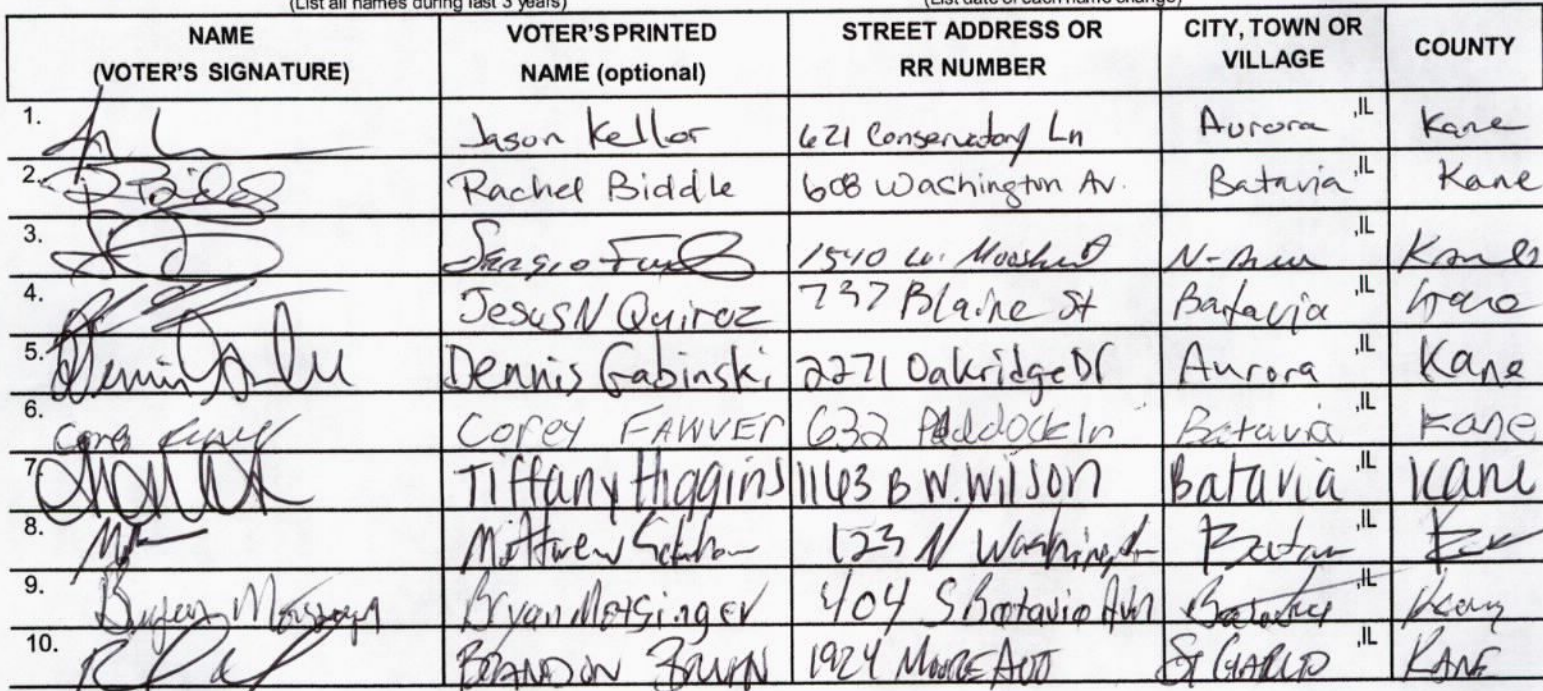 (List all names during last 3 years) (List date of each name change)
NAME (VOTER'S SIGNATURE) VOTER'S PRINTED NAME (optional) STREET ADDRESS OR RR NUMBER CITY, TOWN OR VILLAGE COUNTY
1. Jason Kellor 621 Conservatory Ln Aurora ,IL Kane
2. Rachel Biddle 608 Washington Av. Batavia ,IL Kane
3. Sergio 1540 W. ,IL
4. Jesus N Quiroz 737 Blaine St Batavia ,IL
5. Dennis Gabinski 2271 Oakridge Dr Aurora ,IL Kane
6. Corey FAWVER 632 Paddock ln Batavia ,IL Kane
7. Tiffany Higgins 1163 B W. Wilson Batavia ,IL Kane
8. Matthew 123 N Washington ,IL
9. Bryan Motsinger 404 S Batavia Ave ,IL
10. BRANDON 1924 MOORE ST CHARLES ,IL KANE